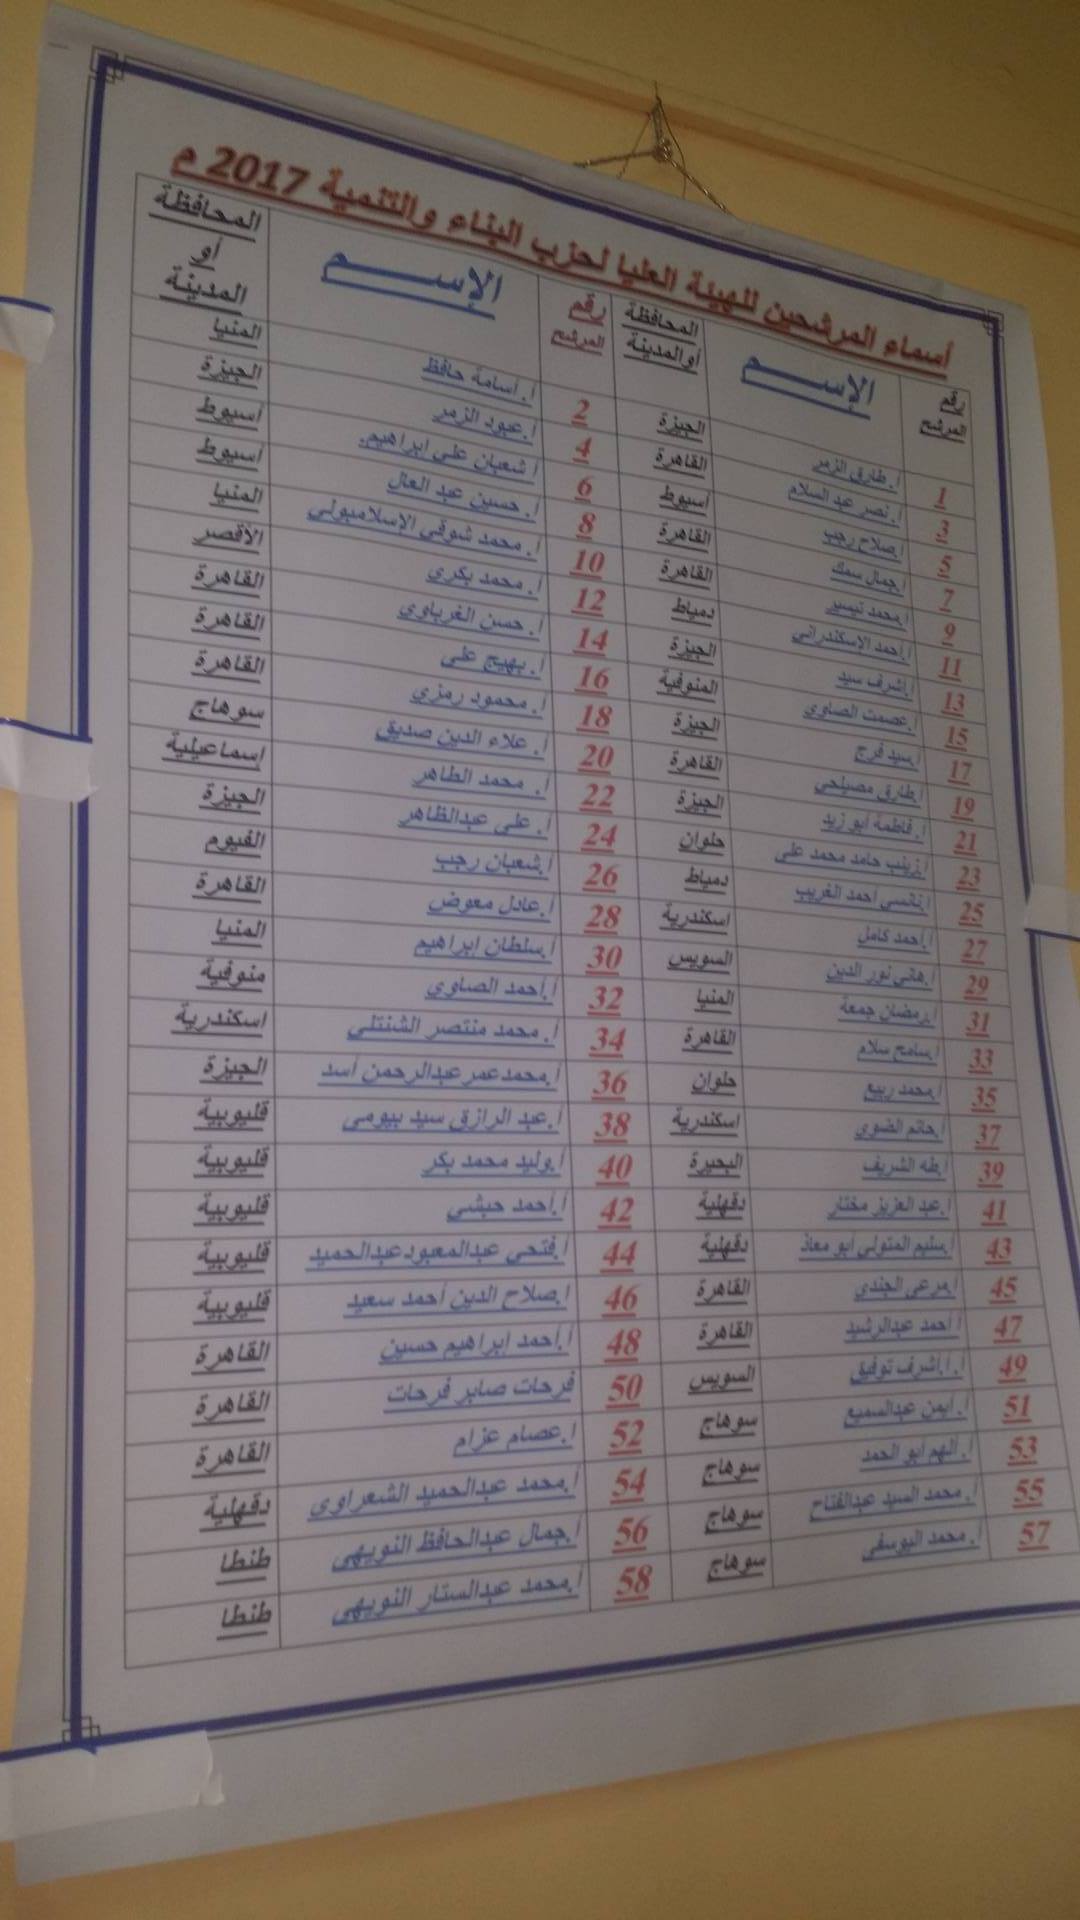 أسماء المرشحين للهيئة العليا لحزب البناء والتنمية 2017 م
رقم المرشح الإســـــم المحافظة أو المدينة رقم المرشح الإســـــم المحافظة أو المدينة
1 أ. طارق الزمر الجيزة 2 أ. أسامة حافظ المنيا
3 أ. نصر عبد السلام القاهرة 4 أ. عبود الزمر الجيزة
5 أ.صلاح رجب أسيوط 6 أ شعبان على ابراهيم. أسيوط
7 أ.جمال سمك القاهرة 8 أ. حسين عبد العال أسيوط
9 أ.محمد تيسير القاهرة 10 أ. محمد شوقي الإسلامبولي المنيا
11 أ.أحمد الإسكندراني دمياط 12 أ. محمد بكري الأقصر
13 أ.أشرف سيد الجيزة 14 أ. حسن الغرباوي القاهرة
15 أ.عصمت الصاوي المنوفية 16 أ. بهيج على القاهرة
17 أ.سيد فرج الجيزة 18 أ. محمود رمزي القاهرة
19 أ.طارق مصيلحي القاهرة 20 أ. علاء الدين صديق سوهاج
21 أ. فاطمة أبو زيد الجيزة 22 أ. محمد الطاهر إسماعيلية
23 أ.زينب حامد محمد على حلوان 24 أ. على عبدالظاهر الجيزة
25 أ.نانسى أحمد الغريب دمياط 26 أ.شعبان رجب الفيوم
27 أ.أحمد كامل اسكندرية 28 أ.عادل معوض القاهرة
29 أ.هانى نور الدين السويس 30 أ.سلطان ابراهيم المنيا
31 أ.رمضان جمعة المنيا 32 أ.أحمد الصاوي منوفية
33 أ.سامح سلام القاهرة 34 أ. محمد منتصر الشنتلى اسكندرية
35 أ.محمد ربيع حلوان 36 أ.محمدعمر عبدالرحمن أسد الجيزة
37 أ.حاتم الضوي اسكندرية 38 أ.عبد الرازق سيد بيومى قليوبية
39 أ.طه الشريف البحيرة 40 أ.وليد محمد بكر قليوبية
41 أ.عبد العزيز مختار دقهلية 42 أ.أحمد حبشي قليوبية
43 أ.سليم المتولى أبو معاذ دقهلية 44 أ.فتحى عبدالمعبودعبدالحميد قليوبية
45 أ.مرعى الجندي القاهرة 46 أ.صلاح الدين أحمد سعيد قليوبية
47 أ أحمد عبدالرشيد القاهرة 48 أ.أحمد إبراهيم حسين القاهرة
49 أ. أشرف توفيق السويس 50 فرحات صابر فرحات القاهرة
51 أ. أيمن عبدالسميع سوهاج 52 أ.عصام عزام القاهرة
53 أ. ألهم أبو الحمد سوهاج 54 أ.محمد عبدالحميد الشعراوى دقهلية
55 أ. محمد السيد عبدالفتاح سوهاج 56 أ.جمال عبدالحافظ النويهى طنطا
57 أ. محمد اليوسفى سوهاج 58 أ.محمد عبدالستار النويهى طنطا